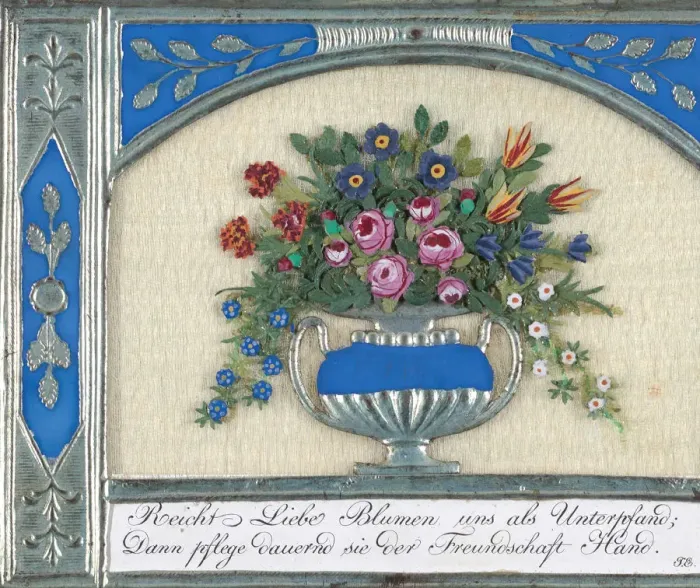 Reicht Liebe Blumen uns als Unterpfand;
Dann pflege dauernd sie der Freundschaft Hand.
J.E.